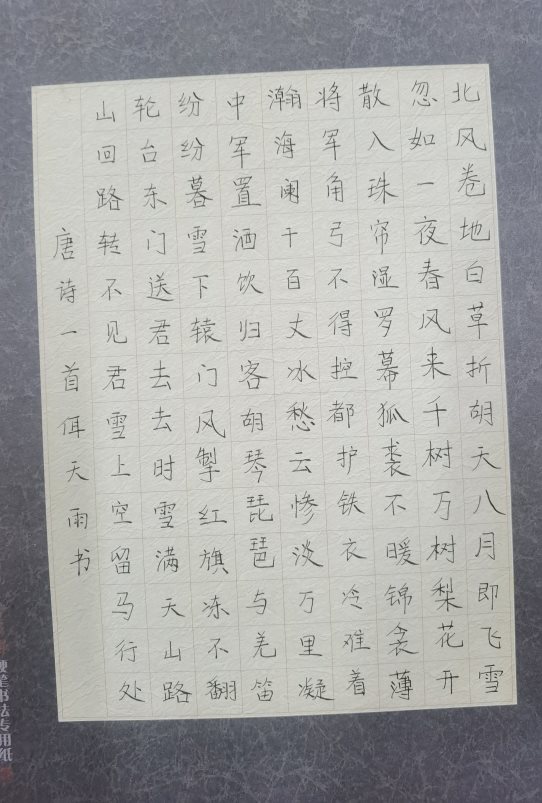 北风卷地白草折胡天八月即飞雪
忽如一夜春风来千树万树梨花开
散入珠帘湿罗幕狐裘不暖锦衾薄
将军角弓不得控都护铁衣冷难着
瀚海阑干百丈冰愁云惨淡万里凝
中军置酒饮归客胡琴琵琶与羌笛
纷纷暮雪下辕门风掣红旗冻不翻
轮台东门送君去去时雪满天山路
山回路转不见君雪上空留马行处
唐诗一首佴天雨书
硬笔书法专用纸